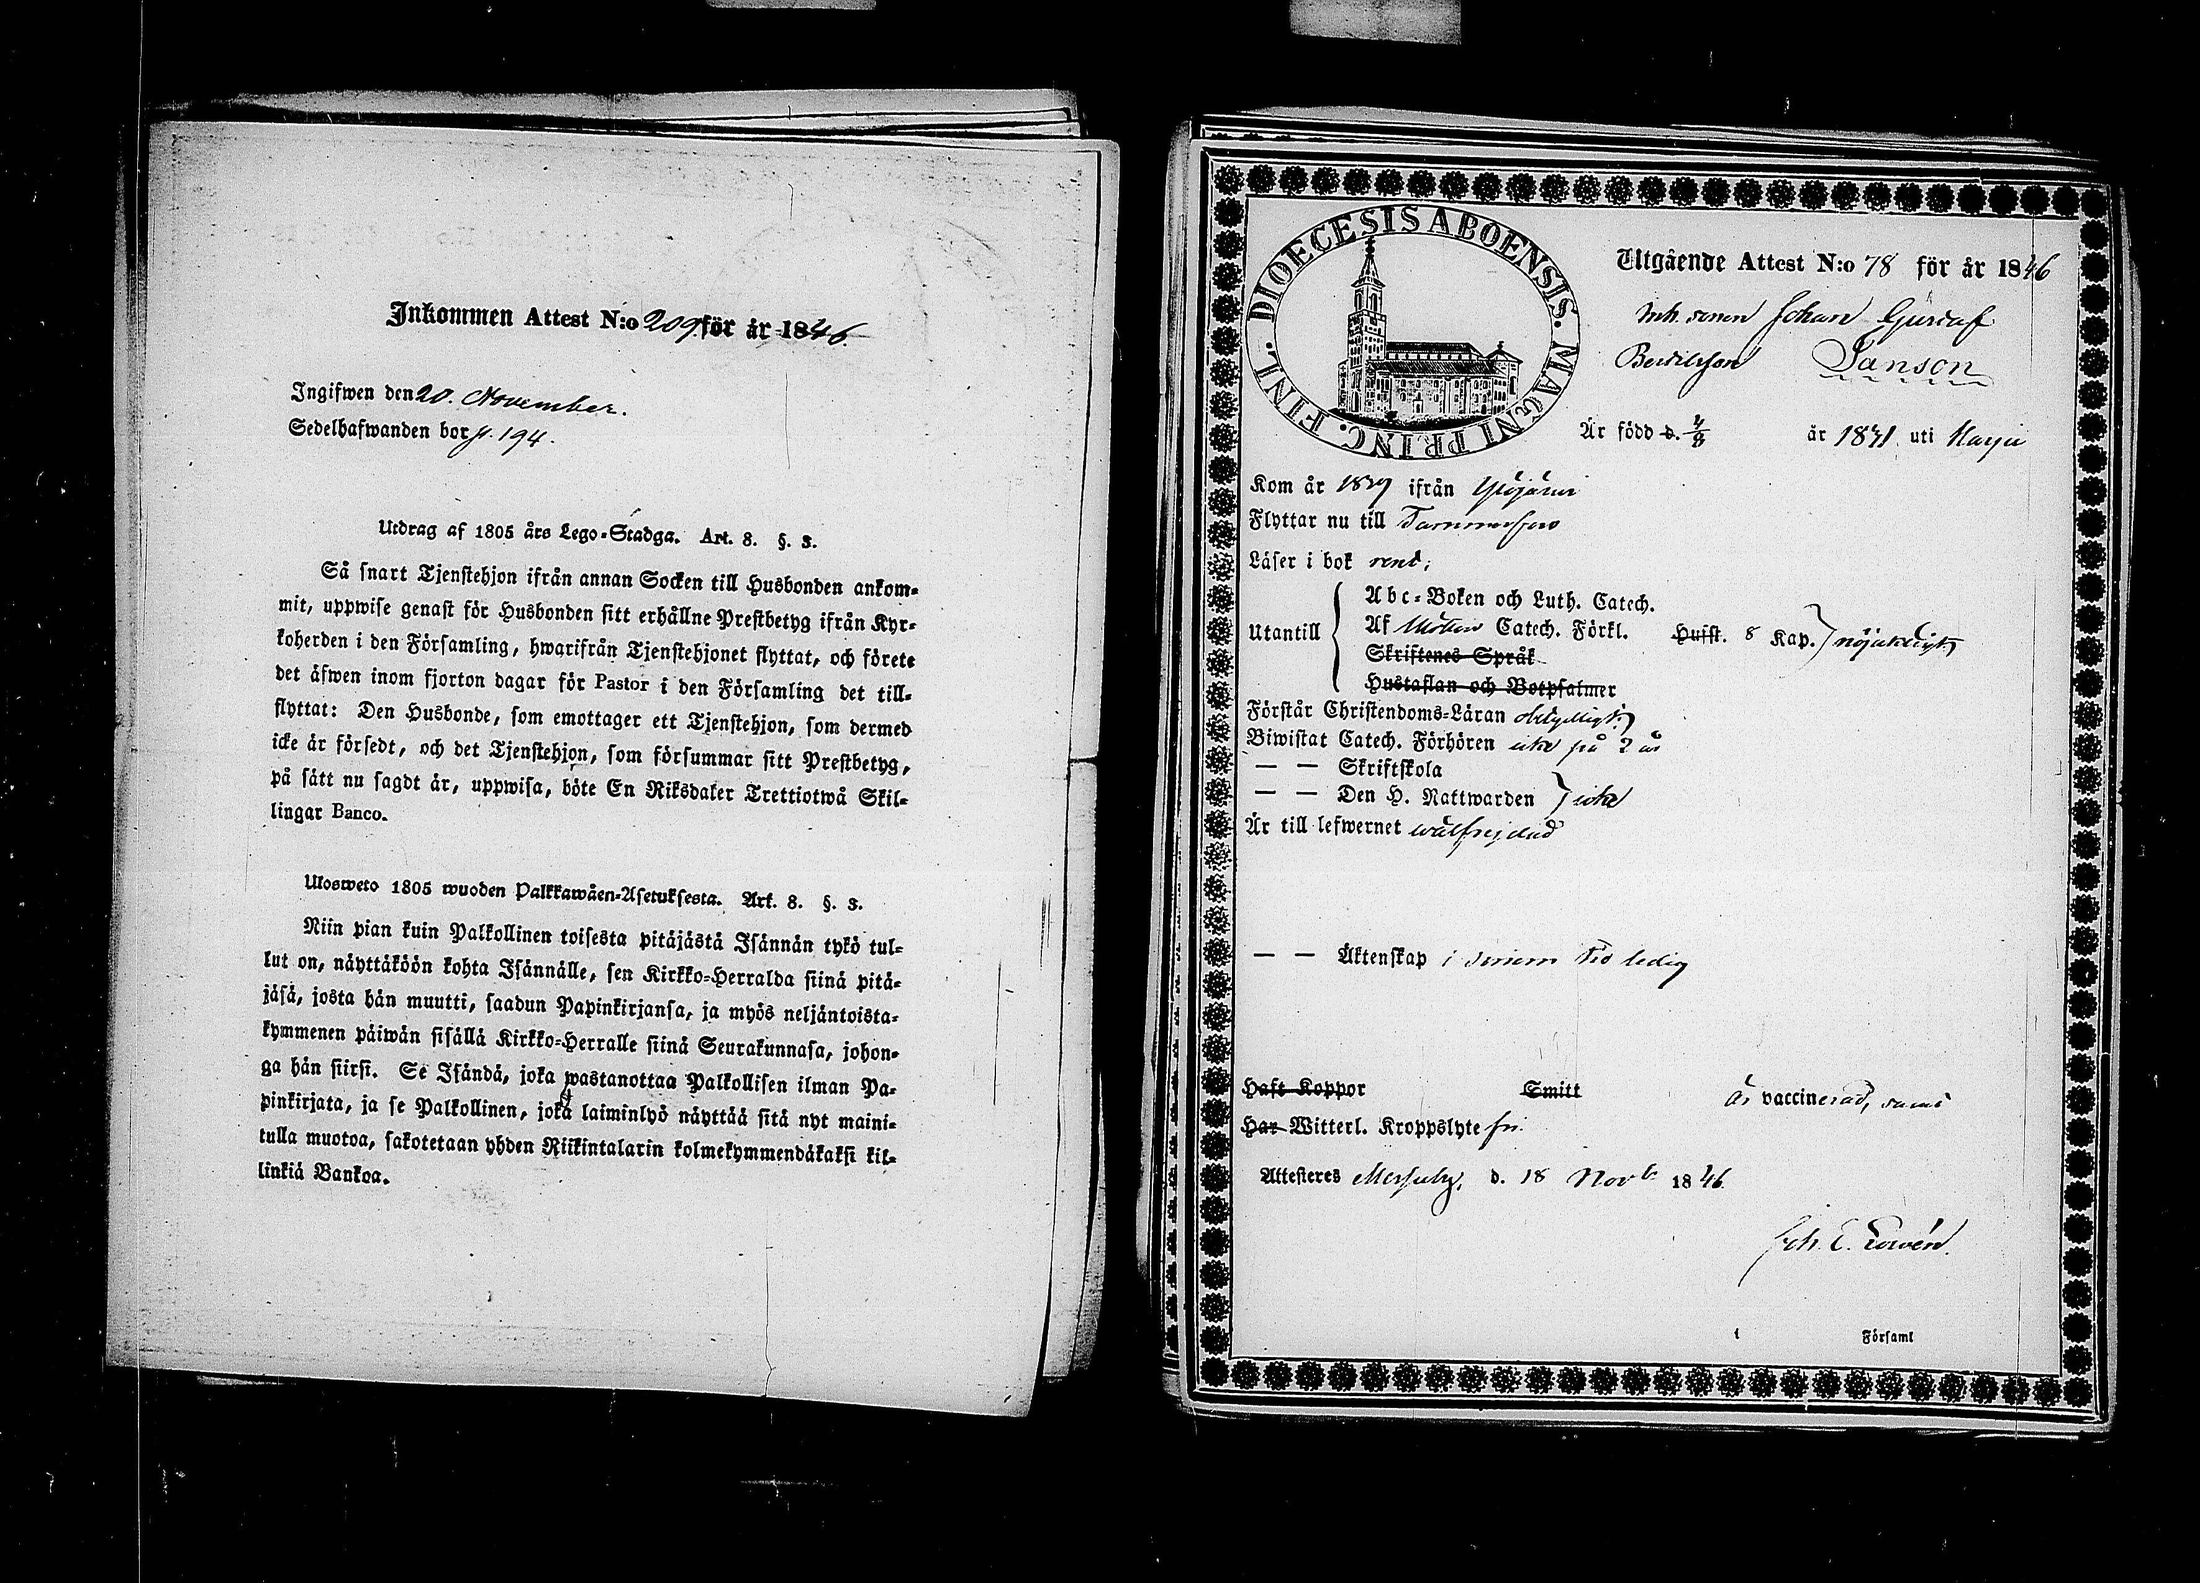 Inkommen Attest N:o 209. för år 1846
Ingifwen den 20. November.
Sedelhafwanden bor p. 194.
Utdrag af 1805 års Lego-Stadga. Art. 8. §. 3.
Så snart Tjenstehjon ifrån annan Socken till Husbonden ankom-
mit, uppwise genast för Husbonden sitt erhållne Prestbetyg ifrån Kyr-
koherden i den Församling, hwarifrån Tjenstehjonet flyttat, och förete
det äfwen inom fjorton dagar för Pastor i den Församling det till-
flyttat: Den Husbonde, som emottager ett Tjenstehjon, som dermed
icke är försedt, och det Tjenstehjon, som försummar sitt Prestbetyg,
på sätt nu sagdt är, uppwisa, böte En Riksdaler Trettiotwå Skil-
lingar Banco.
Ulosweto 1805 wuoden Palkkawäen-Asetuksesta. Art. 8. §. 3.
Niin pian kuin Palkollinen toisesta pitäjästä Isännän tykö tul-
lut on, näyttäköön kohta Isännälle, sen Kirkko-Herralda siinä pitä-
jäsä, josta hän muutti, saadun Papinkirjansa, ja myös neljäntoista-
kymmenen päiwän sisällä Kirkko-Herralle siinä Seurakunnasa, johon-
ga hän siirsi. Se Isändä, joka wastanottaa Palkollisen ilman Pa-
pinkirjata, ja se Palkollinen, joka laiminlyö näyttää sitä nyt maini-
tulla muotoa, sakotetaan yhden Riikintalarin kolmekymmendäkaksi kil-
linkiä Bankoa.
DIOECESIS ABOENSIS. MAGNI PRINC. FINL.
Utgående Attest N:o 78 för år 1846
Inh. sonen Johan Gustaf
Bertilsson Sanson
Är född d. 4/8 år 1831 uti Harju
Kom år 1839 ifrån Ylöjärvi
Flyttar nu till Tammerfors
Läser i bok rent;
Utantill
Abc-Boken och Luth. Catech.
Af Möllers Catech. Förkl. Hufst. 8 Kap. nöjaktligt
Skriftenes Språk
Hustaflan och Botpsalmer
Förstår Christendoms-Läran
Biwistat Catech. Förhören icke på 2 år
— — Skriftskola
— — Den H. Nattwarden icke
Är till lefwernet wälfrejdad
— — Äktenskap i sinom tid ledig
Haft Koppor Smitt är vaccinerad, samt
Har Witterl. Kroppslyte fri.
Attesteres Messuby, d. 18 Novb. 1846
Joh. E.
i Församl